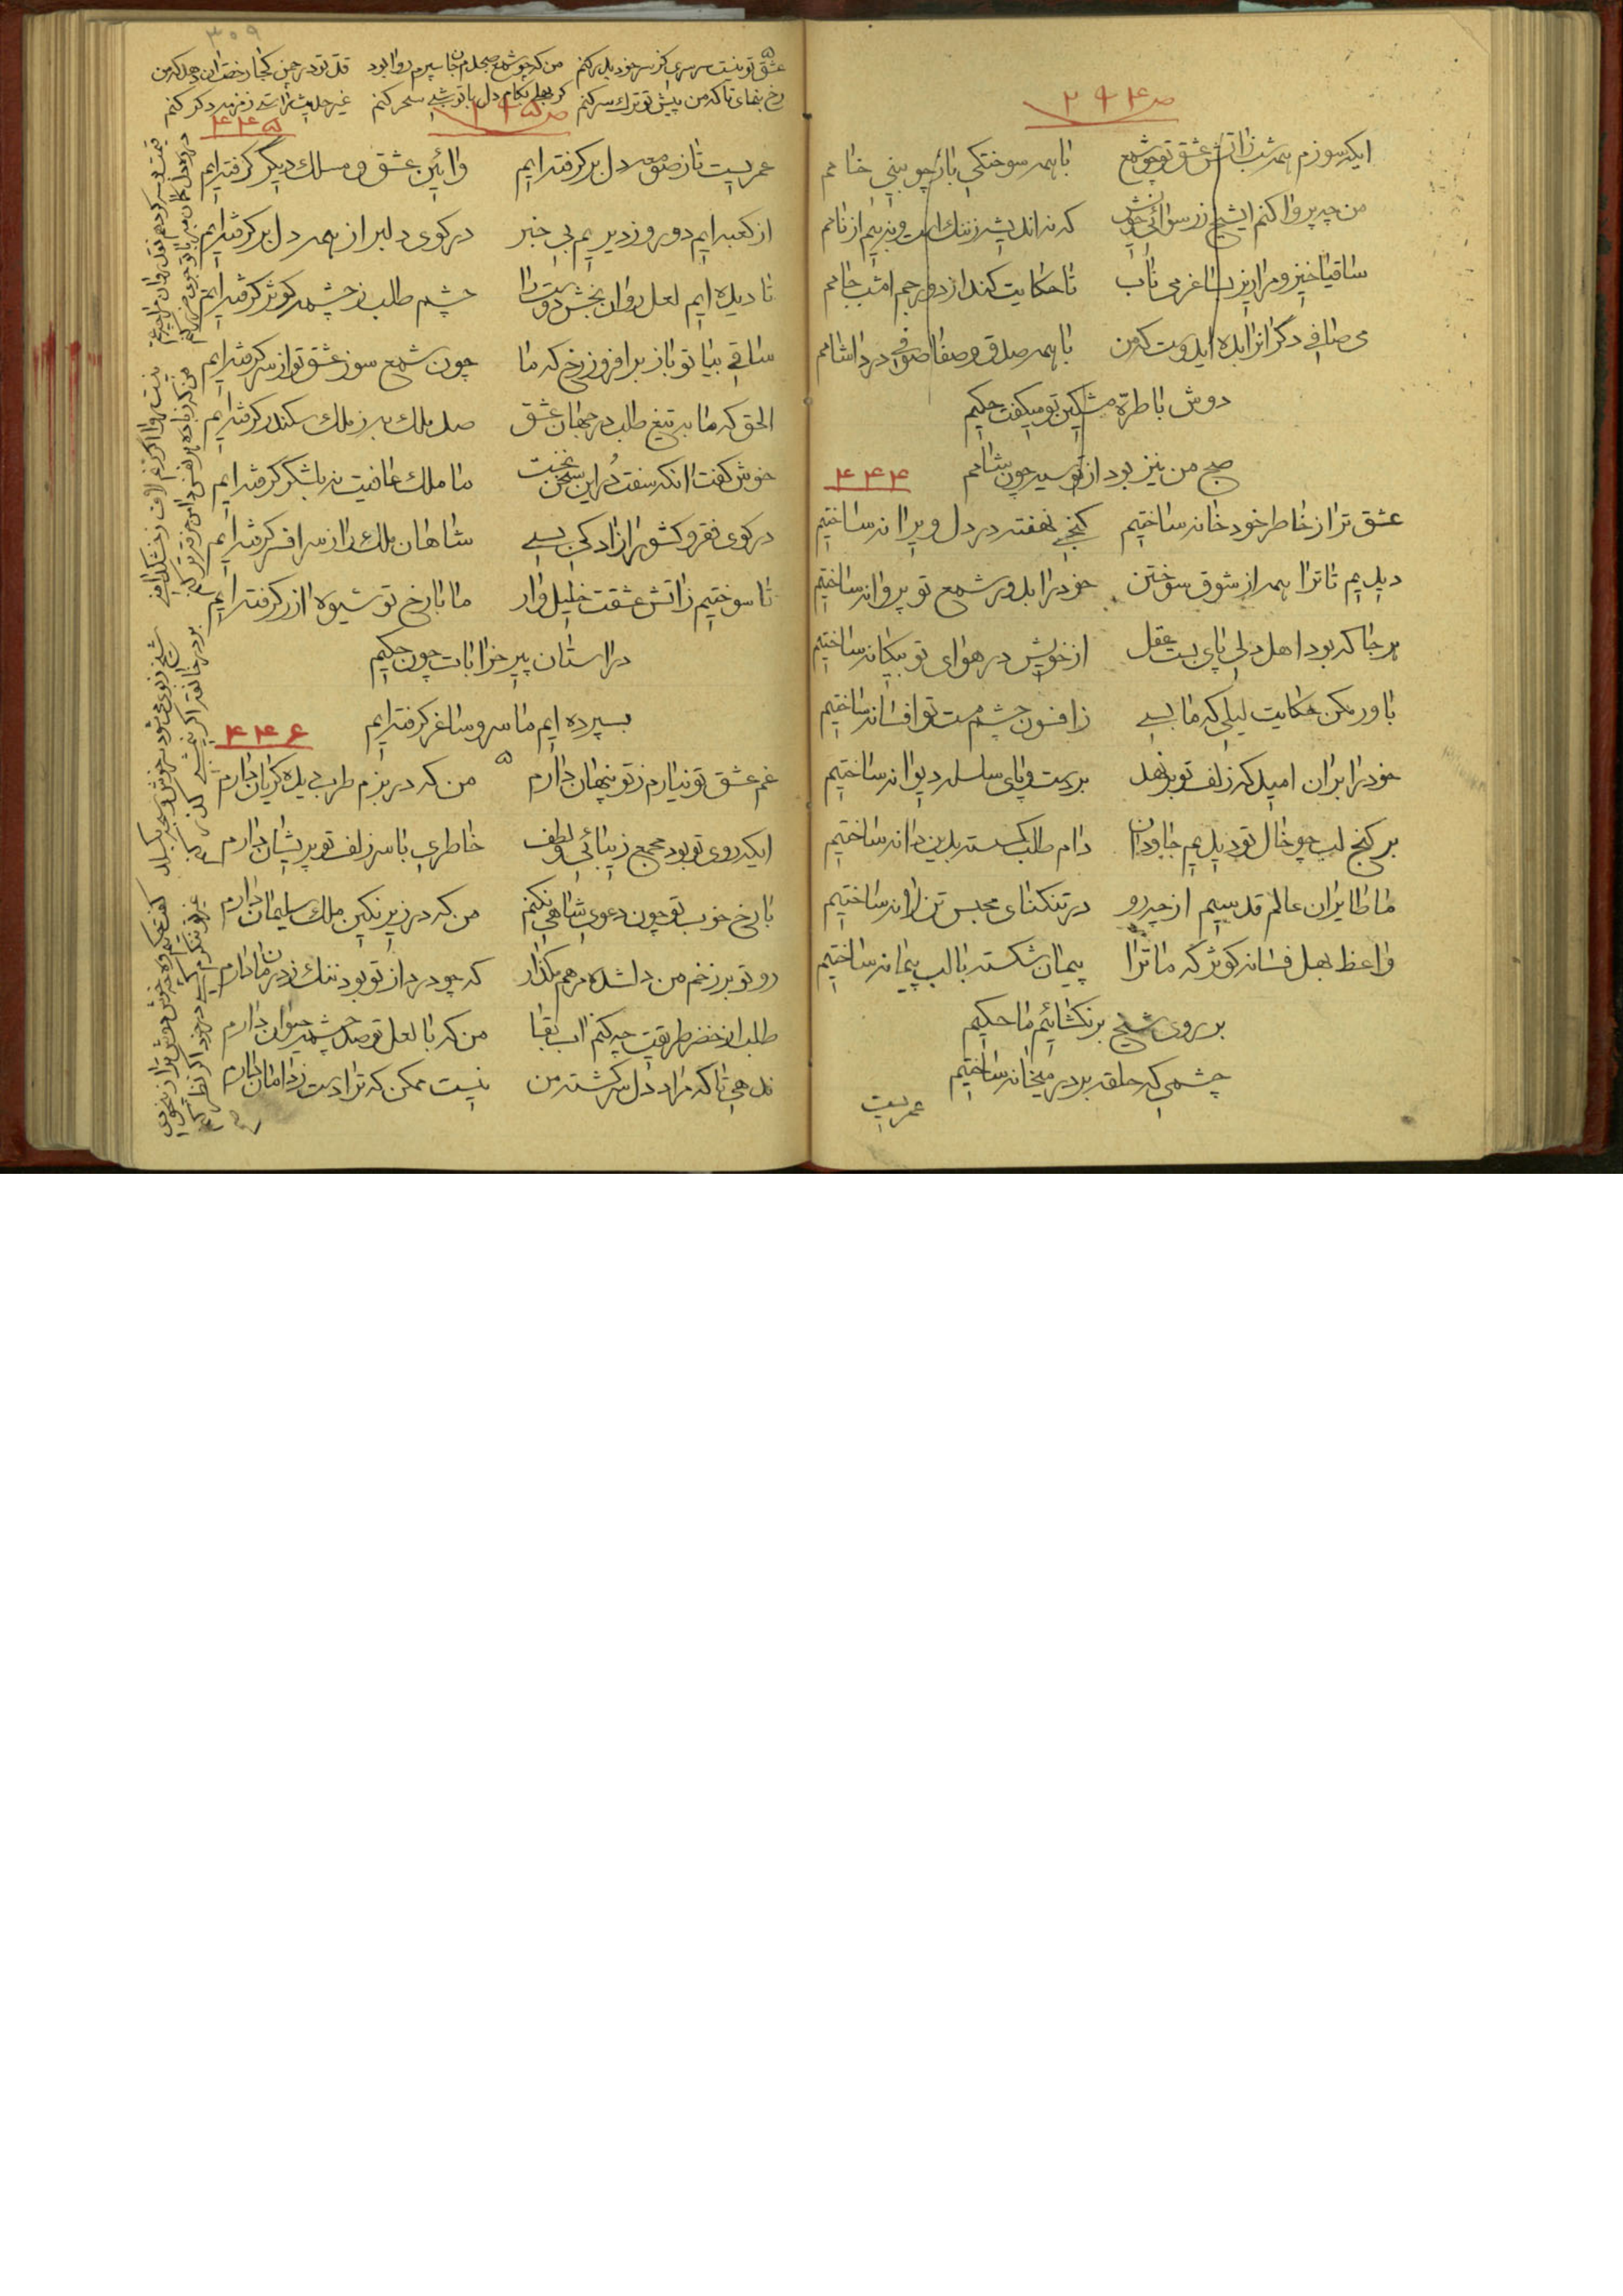 ص ۲۹۴
ایکه سوزم همه شب زاتش عشق تو چو شمع با همه سوختگی باز چو بینی خامم
من چه پروا کنم ایشیخ ز رسوائی خویش که نه اندیشه ز ننگ است و نه بیم از نامم
ساقیا خیز و مرا ریز بساغر می ناب تا حکایت کند از دور جم امشب جامم
می صافی دگرانرا بده ایدوست که من با همه صدق و صفا صوفی درد آشامم
دوش با طره مشکین تو میگفت حکیم
صبح من نیز بود از تو سیه چون شامم
۴۴۴
عشق ترا ز خاطر خود خانه ساختیم گنجی نهفته در دل ویرانه ساختیم
دیدیم تا ترا همه از شوق سوختن خود را بدور شمع تو پروانه ساختیم
هر جا که بود اهل دلی پای بست عقل از خویش در هوای تو بیگانه ساختیم
باور مکن حکایت لیلی که ما بسی زافسون چشم مست تو افسانه ساختیم
خود را بران امید که زلف تو برنهد بر دست و پای سلسله دیوانه ساختیم
بر کنج لب چو خال تو دیدیم جاودان دام طلب گسسته بدین دانه ساختیم
ما طایران عالم قدسیم از چه رو در تنگنای محبس تن لانه ساختیم
واعظ بهل فسانه کوثر که ما ترا پیمان شکسته با لب پیمانه ساختیم
بر روی شیخ بر نگشائیم ما حکیم
چشمی که حلقه بر در میخانه ساختیم
عمریست
۳۰۹
عشق تو نیست سرسری کز سر خود بدر کنم من که چو شمع صبحدم جان سپرم روا بود
رخ بنمای تا که من پیش تو ترک سر کنم گر بهلی بکام دل با تو شبی سحر کنم
ص ۲۹۵
۴۴۵
عمریست تا ز صومعه دل بر گرفته ایم وآئین عشق و مسلک دیگر گرفته ایم
از کعبه ایم دور و ز دیریم بی خبر در کوی دلبر از همه دل بر گرفته ایم
تا دیده ایم لعل روان بخش دوست را چشم طلب ز چشمه کوثر گرفته ایم
ساقی بیا تو باز برافروز رخ که ما چون شمع سوز عشق تو از سر گرفته ایم
الحق که ما به تیغ طلب در جهان عشق صد ملک به ز ملک سکندر گرفته ایم
خوش گفت آنکه سفت در این سخن نخست ما ملک عافیت نه بلشگر گرفته ایم
در کوی فقر و کشور آزادگی بسی شاهان ملک را ز سر افسر گرفته ایم
تا سوختیم زاتش عشقت خلیل وار ما با رخ تو شیوه آزر گرفته ایم
در آستان پیر خرابات چون حکیم
بسپرده ایم ما سر و ساغر گرفته ایم
۴۴۶
غم عشق تو نیارم ز تو پنهان دارم من که در بزم طرب دیده گریان دارم
ایکه روی تو بود مجمع زیبائی و لطف خاطری با سر زلف تو پریشان دارم
با رخ خوب تو چون دعوی شاهی نکنم من که در زیر نگین ملک سلیمان دارم
رو تو بر زخم من دلشده مرهم مگذار که چو درد از تو بود ننگ ز درمان دارم
طلب از خضر طریقت چه کنم آب بقا من که با لعل تو صد چشمه حیوان دارم
ندهی تا که مراد دل سرگشته من نیست ممکن که ترا دست ز دامان دارم